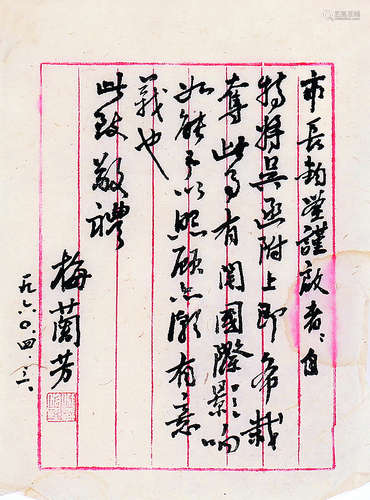 市長鈞鑒謹啟者:自
特將吳函附上即希裁
奪此事有関國際影响
如能予以照顧亦頗有意
義也
此致敬禮
梅蘭芳
一九六〇.四.